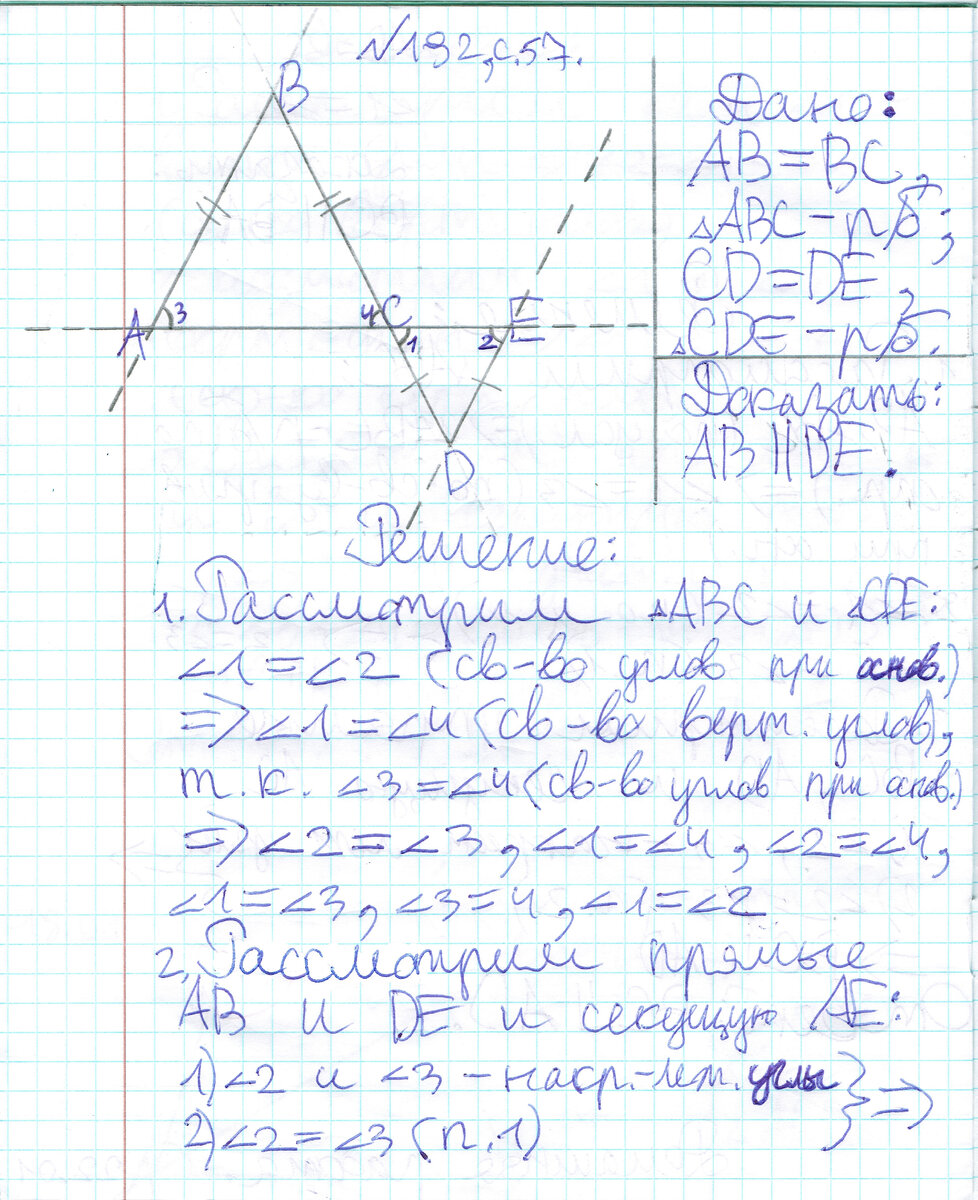 №192, с.57.
B
A
3
4
C
1
2
E
D
Дано:
AB=BC,
△ABC-рб;
CD=DE,
△CDE-рб.
Доказать:
AB||DE.
Решение:
1. Рассмотрим △ABC и △CDE:
∠1=∠2 (св-во углов при основ.)
=>∠1=∠4 (св-во верт. углов),
т.к. ∠3=∠4 (св-во углов при основ.)
=>∠2=∠3, ∠1=∠4, ∠2=∠4,
∠1=∠3, ∠3=4, ∠1=∠2
2. Рассмотрим прямые
AB и DE и секущую AE:
1) ∠2 и ∠3 - накр.-леж. углы } =>
2) ∠2=∠3 (п.1)